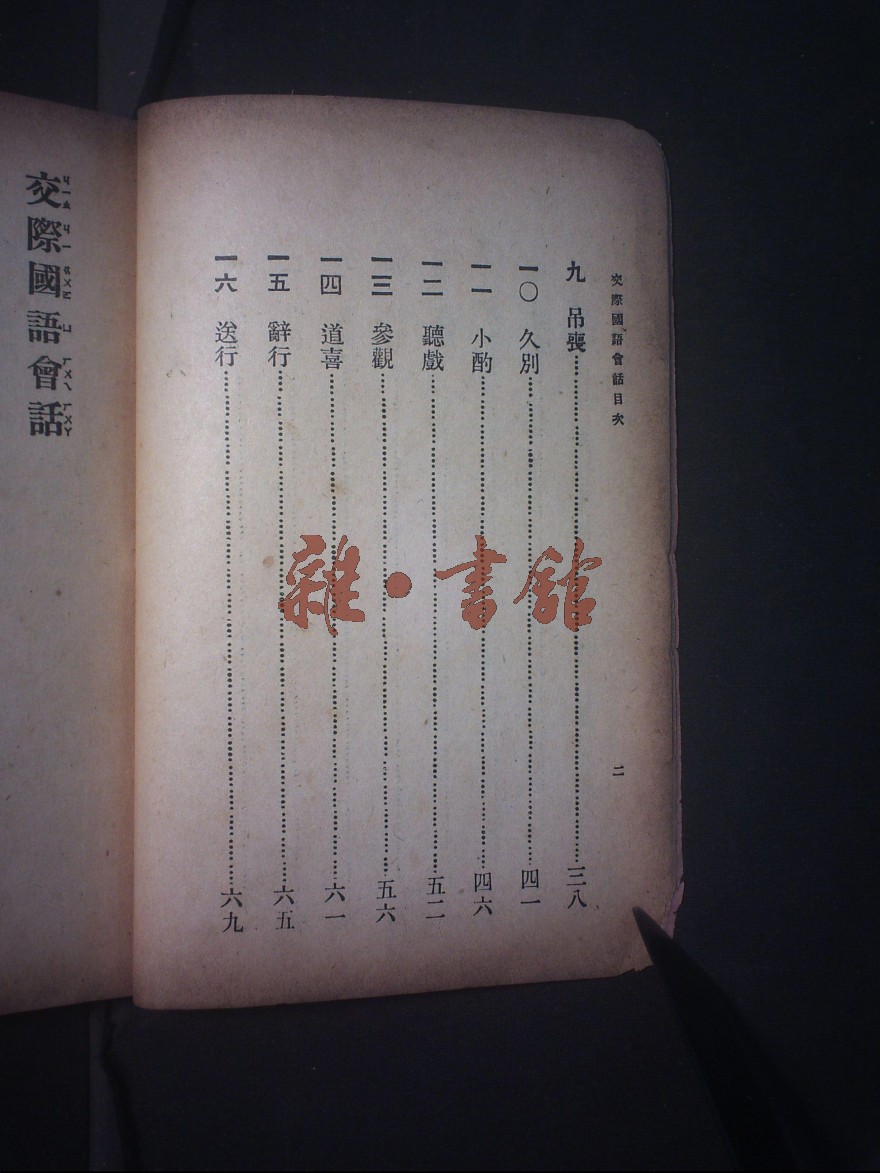 交際國語會話目次
九 吊喪……三八
一〇 久別……四一
一一 小酌……四六
一二 聽戲……五二
一三 參觀……五六
一四 道喜……六一
一五 辭行……六五
一六 送行……六九
二
交際國語會話
ㄐㄧㄠ ㄐㄧ ㄍㄨㄛ ㄩ ㄏㄨㄟ ㄏㄨㄚ
雜·書館